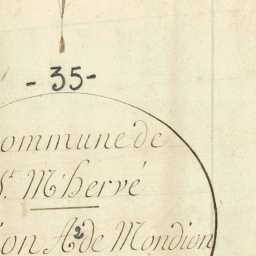 - 35 -
ommune de
St. M'hervé
ion A2 de Mondion